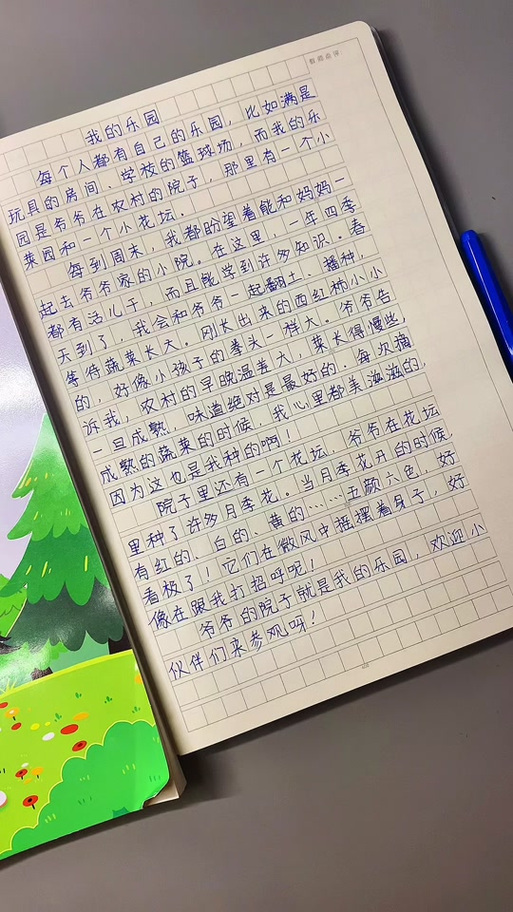 教师点评
我的乐园
每个人都有自己的乐园，比如满是
玩具的房间、学校的篮球场，而我的乐
园是爷爷在农村的院子，那里有一个小
菜园和一个小花坛。
每到周末，我都盼望着能和妈妈一
起去爷爷家的小院。在这里，一年四季
都有活儿干，而且能学到许多知识。春
天到了，我会和爷爷一起翻土、播种，
等待蔬菜长大。刚长出来的西红柿小小
的，好像小孩子的拳头一样大。爷爷告
诉我，农村的早晚温差大，菜长得慢些，
一旦成熟，味道绝对是最好的。每次摘
成熟的蔬菜的时候，我心里都美滋滋的，
因为这也是我种的啊！
院子里还有一个花坛，爷爷在花坛
里种了许多月季花。当月季花开的时候，
有红的、白的、黄的……五颜六色，好
看极了！它们在微风中摇摆着身子，好
像在跟我打招呼呢！
爷爷的院子就是我的乐园，欢迎小
伙伴们来参观呀！